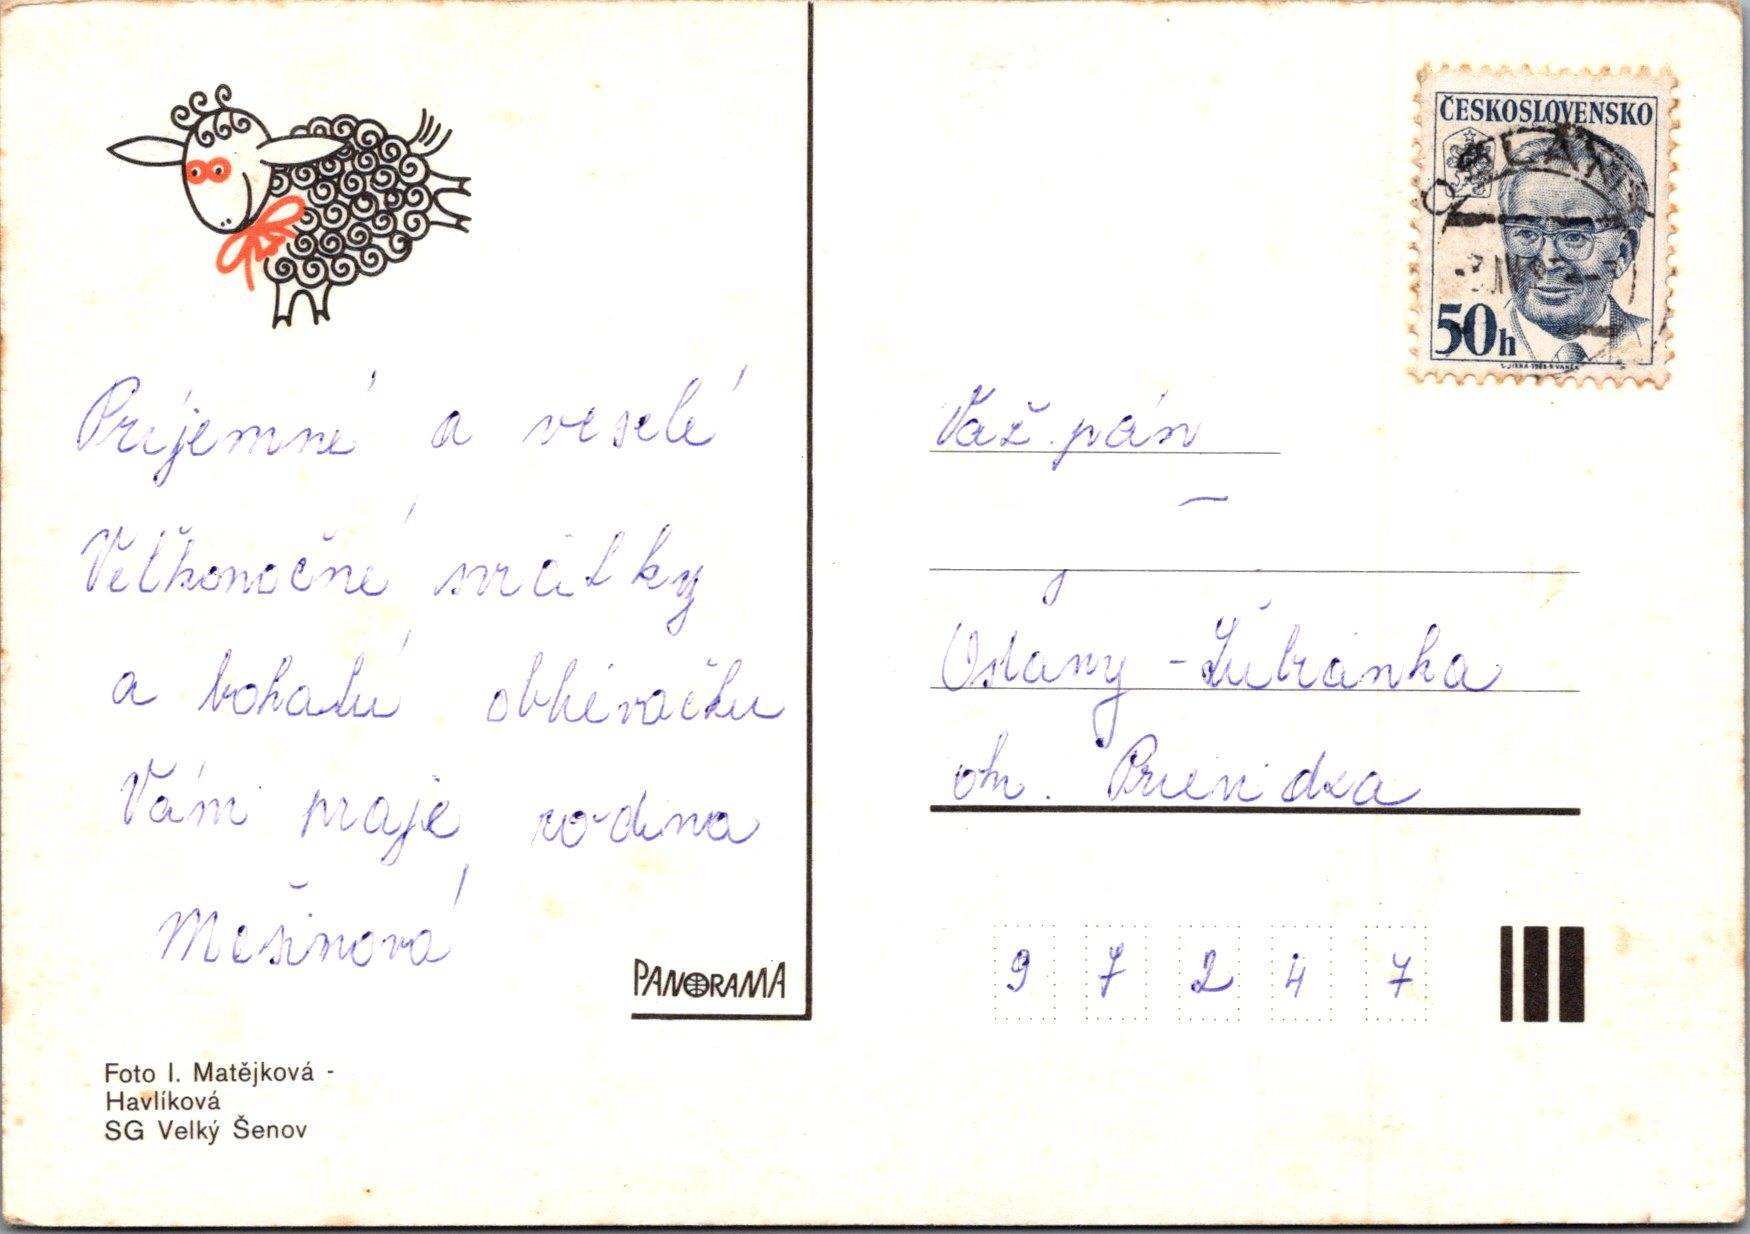 Príjemné a veselé
Veľkonočné sviatky
a bohatú oblievačku
Vám praje rodina
Mešinová
PANORAMA
Foto I. Matějková -
Havlíková
SG Velký Šenov
ČESKOSLOVENSKO
50h
Váž. pán
Oslany - Ľubianka
ok. Prievidza
9 7 2 4 7